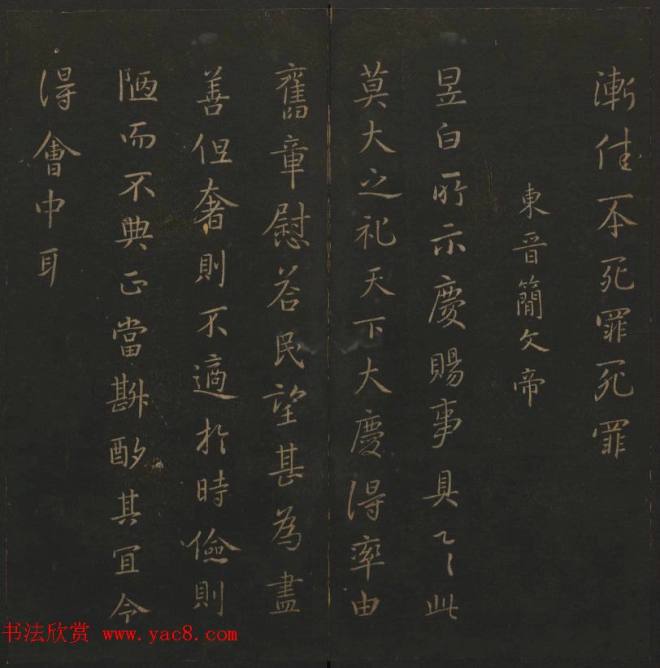 漸佳不死罪死罪
東晉簡文帝
昱白所示慶賜事具之此
莫大之祀天下大慶得率由
舊章慰荅民望甚為盡
善但奢則不適於時儉則
陋而不典正當斟酌其宜令
得會中耳
书法欣赏 www.yac8.com